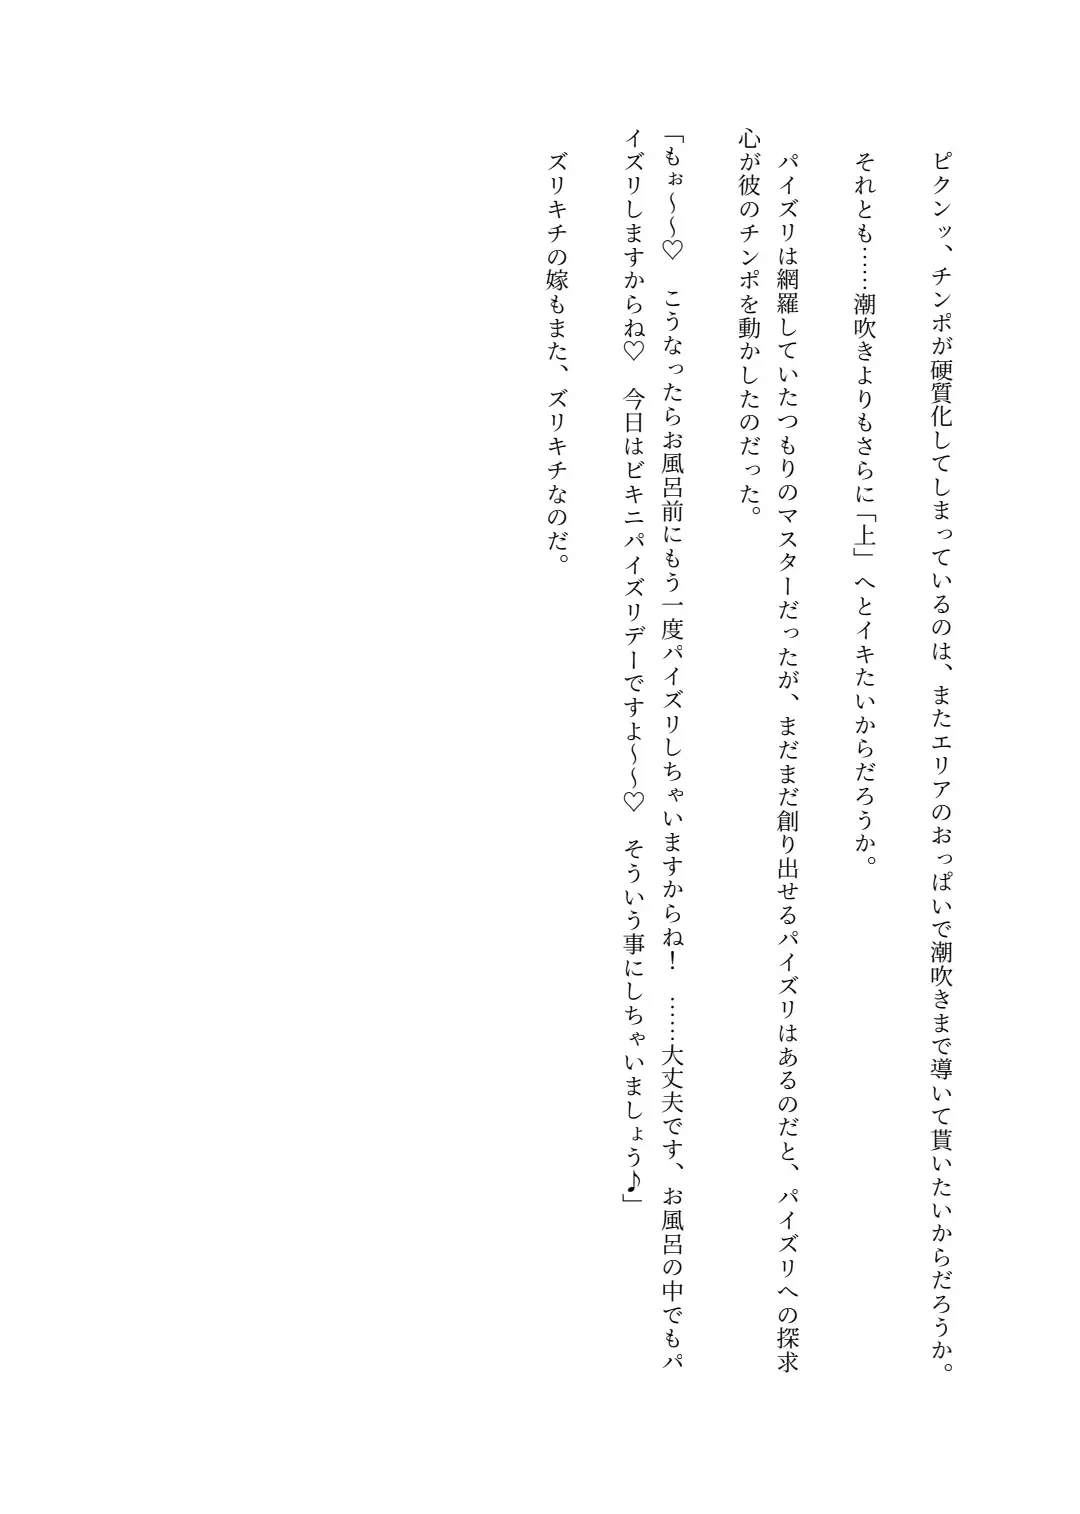 ピクンッ、チンポが硬質化してしまっているのは、またエリアのおっぱいで潮吹きまで導いて貰いたいからだろうか。
それとも……潮吹きよりもさらに「上」へとイキたいからだろうか。
パイズリは網羅していたつもりのマスターだったが、まだまだ創り出せるパイズリはあるのだと、パイズリへの探求
心が彼のチンポを動かしたのだった。
「もぉ～～♡　こうなったらお風呂前にもう一度パイズリしちゃいますからね！　……大丈夫です、お風呂の中でもパ
イズリしますからね♡　今日はビキニパイズリデーですよ～～♡　そういう事にしちゃいましょう♪」
ズリキチの嫁もまた、ズリキチなのだ。